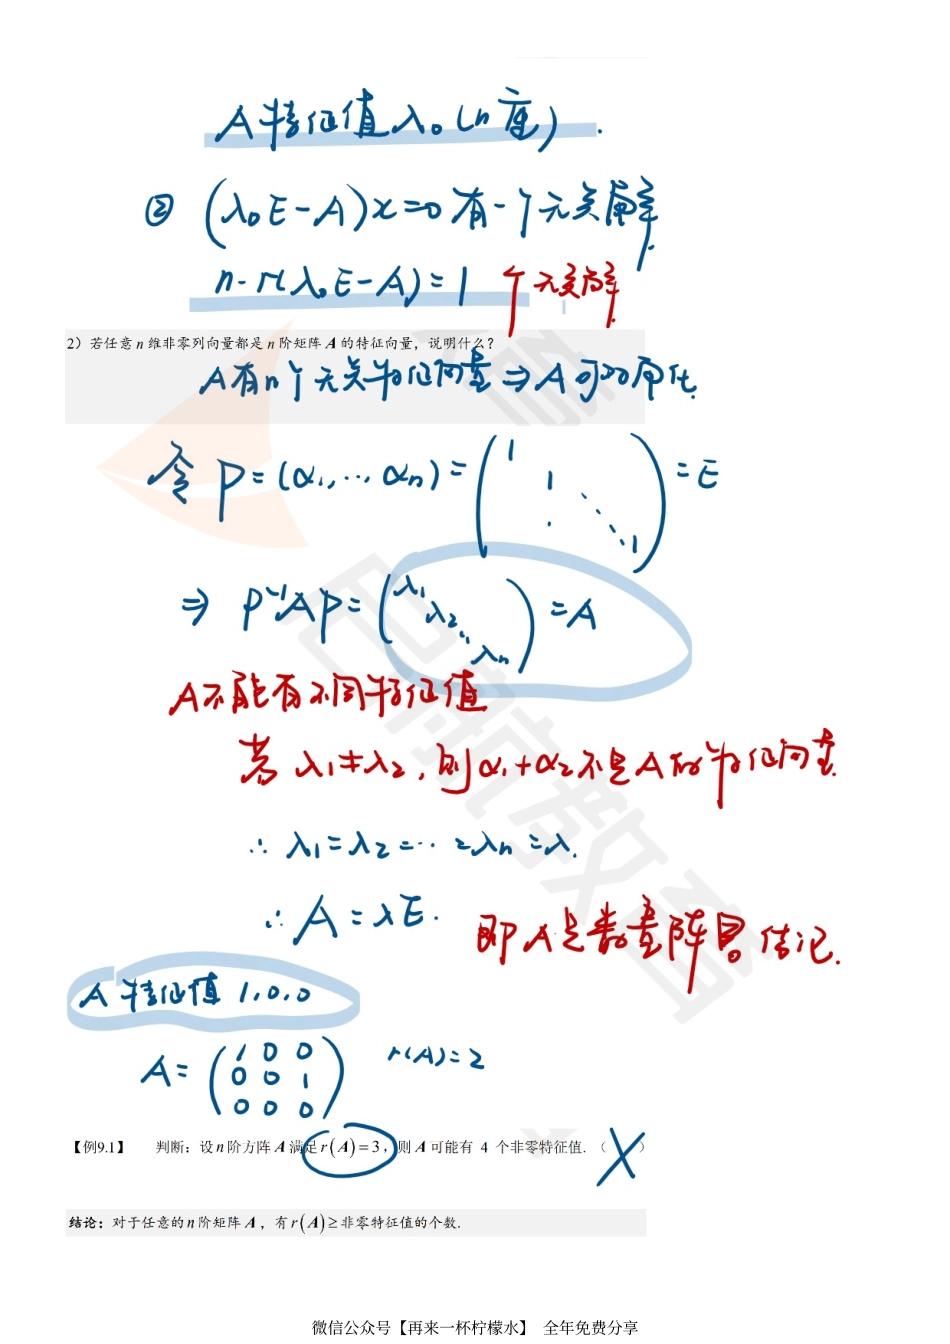 A特征值λ₀(n重).
② (λ₀E-A)x=0有一个无关解.
n-r(λ₀E-A)=1 个无关解.
2）若任意 n 维非零列向量都是 n 阶矩阵 A 的特征向量，说明什么？
A有n个无关特征向量⇒A可对角化.
令 P=(α₁,…αₙ)=(1 1 ⋱ 1)=E
⇒ P⁻¹AP=(λ₁ λ₂ ⋱ λₙ)=Λ
A不能有不同特征值
若 λ₁≠λ₂, 则α₁+α₂不是A的特征向量.
∴ λ₁=λ₂=…=λₙ=λ.
∴ A=λE. 即A是数量阵
A 特征值 1,0,0
A=(1 0 0
0 0 1
0 0 0) r(A)=2
【例9.1】 判断：设 n 阶方阵 A 满足 r(A)=3，则 A 可能有 4 个非零特征值.（ X ）
结论：对于任意的 n 阶矩阵 A，有 r(A)≥非零特征值的个数.
微信公众号【再来一杯柠檬水】 全年免费分享
启航教育